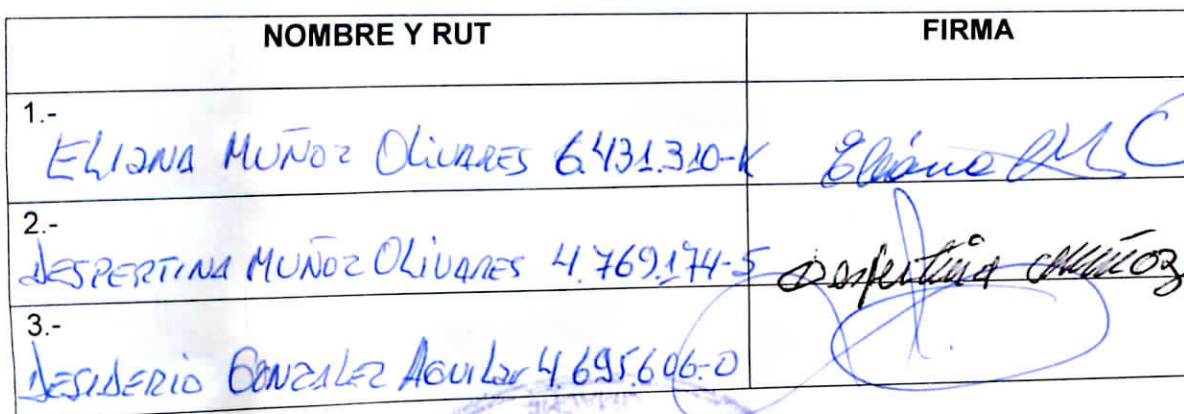 NOMBRE Y RUT FIRMA
1.-
ELIANA MUÑOZ OLIVARES 6.431.310-K Eliana M C
2.-
DESPERTINA MUÑOZ OLIVARES 4.769.174-5 Despertina Muñoz
3.-
DESIDERIO GONZALEZ AGUILar 4.695.606-0